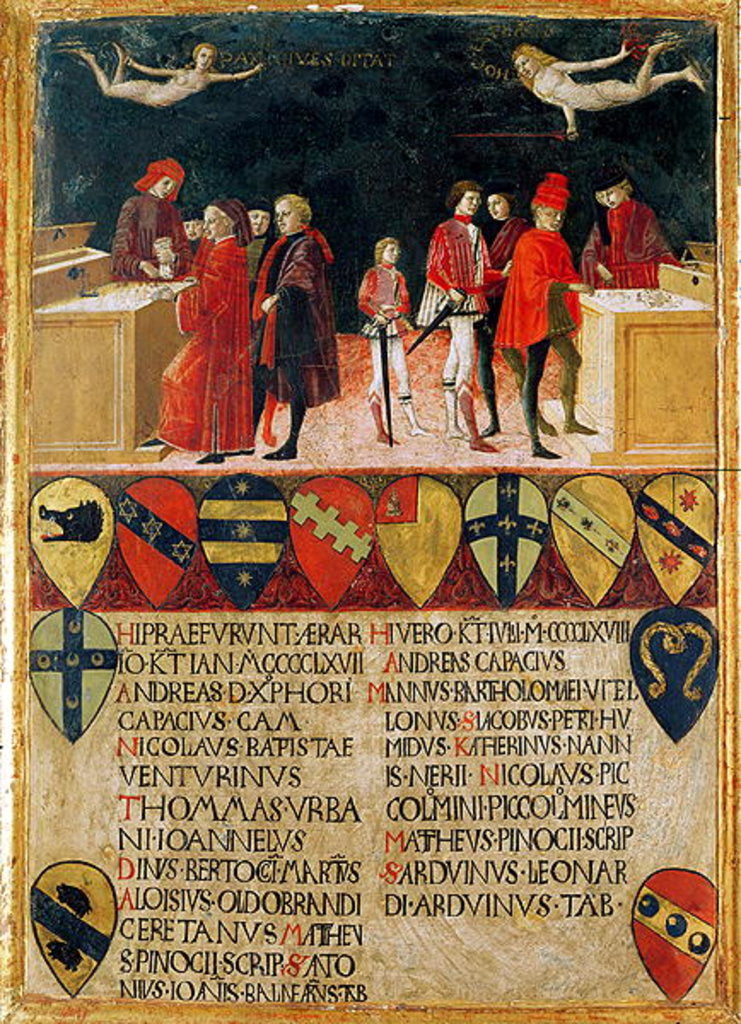 PAX CIVES OPTAT
HIPRAEFVRVNT·ÆRAR
IO·KT̄·IAN·M̊CCCCLXVII
ANDREAS·D·XP̄HORI
CAPACIVS·CAM·
NICOLAVS·BATISTAE
VENTVRINVS
THOMMAS·VRBA
NI·IOANNELVS
DINVS·BERTOCCI·MARTIVS
ALOISIVS·OLDOBRANDI
CERETANVS MATHEV
S·PINOCII·SCRIP·S·ATO
NIVS·IOANIS·BALNEANS·TAB
HIVERO·KT̄·IVLI·M̊·CCCCLXVIII
ANDREAS CAPACIVS
MANNVS·BARTHOLOMAEI·VITEL
LONVS·S·IACOBVS·PETRI·HV
MIDVS·KATHERINVS·NANN
IS·NERII·NICOLAVS·PIC
COLOMINI·PICCOLOMINEVS
MATHEVS·PINOCII·SCRIP
S·ARDVINVS·LEONAR
DI·ARDVINVS·TAB·